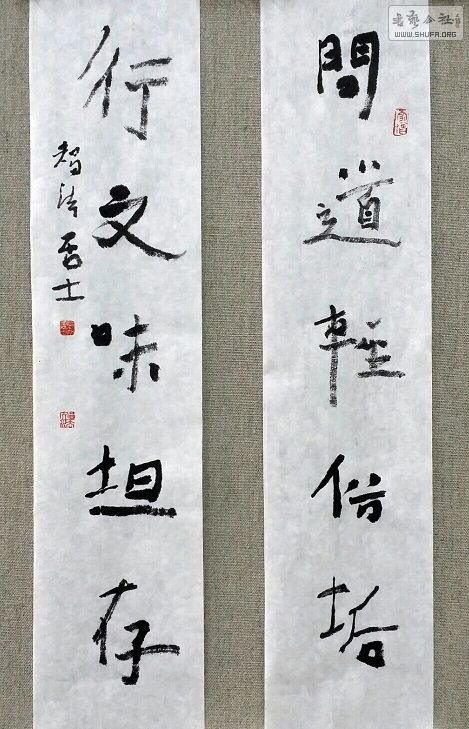 問道輕俗垢
行文味坦存
智清居士
书艺公社
WWW.SHUFA.ORG